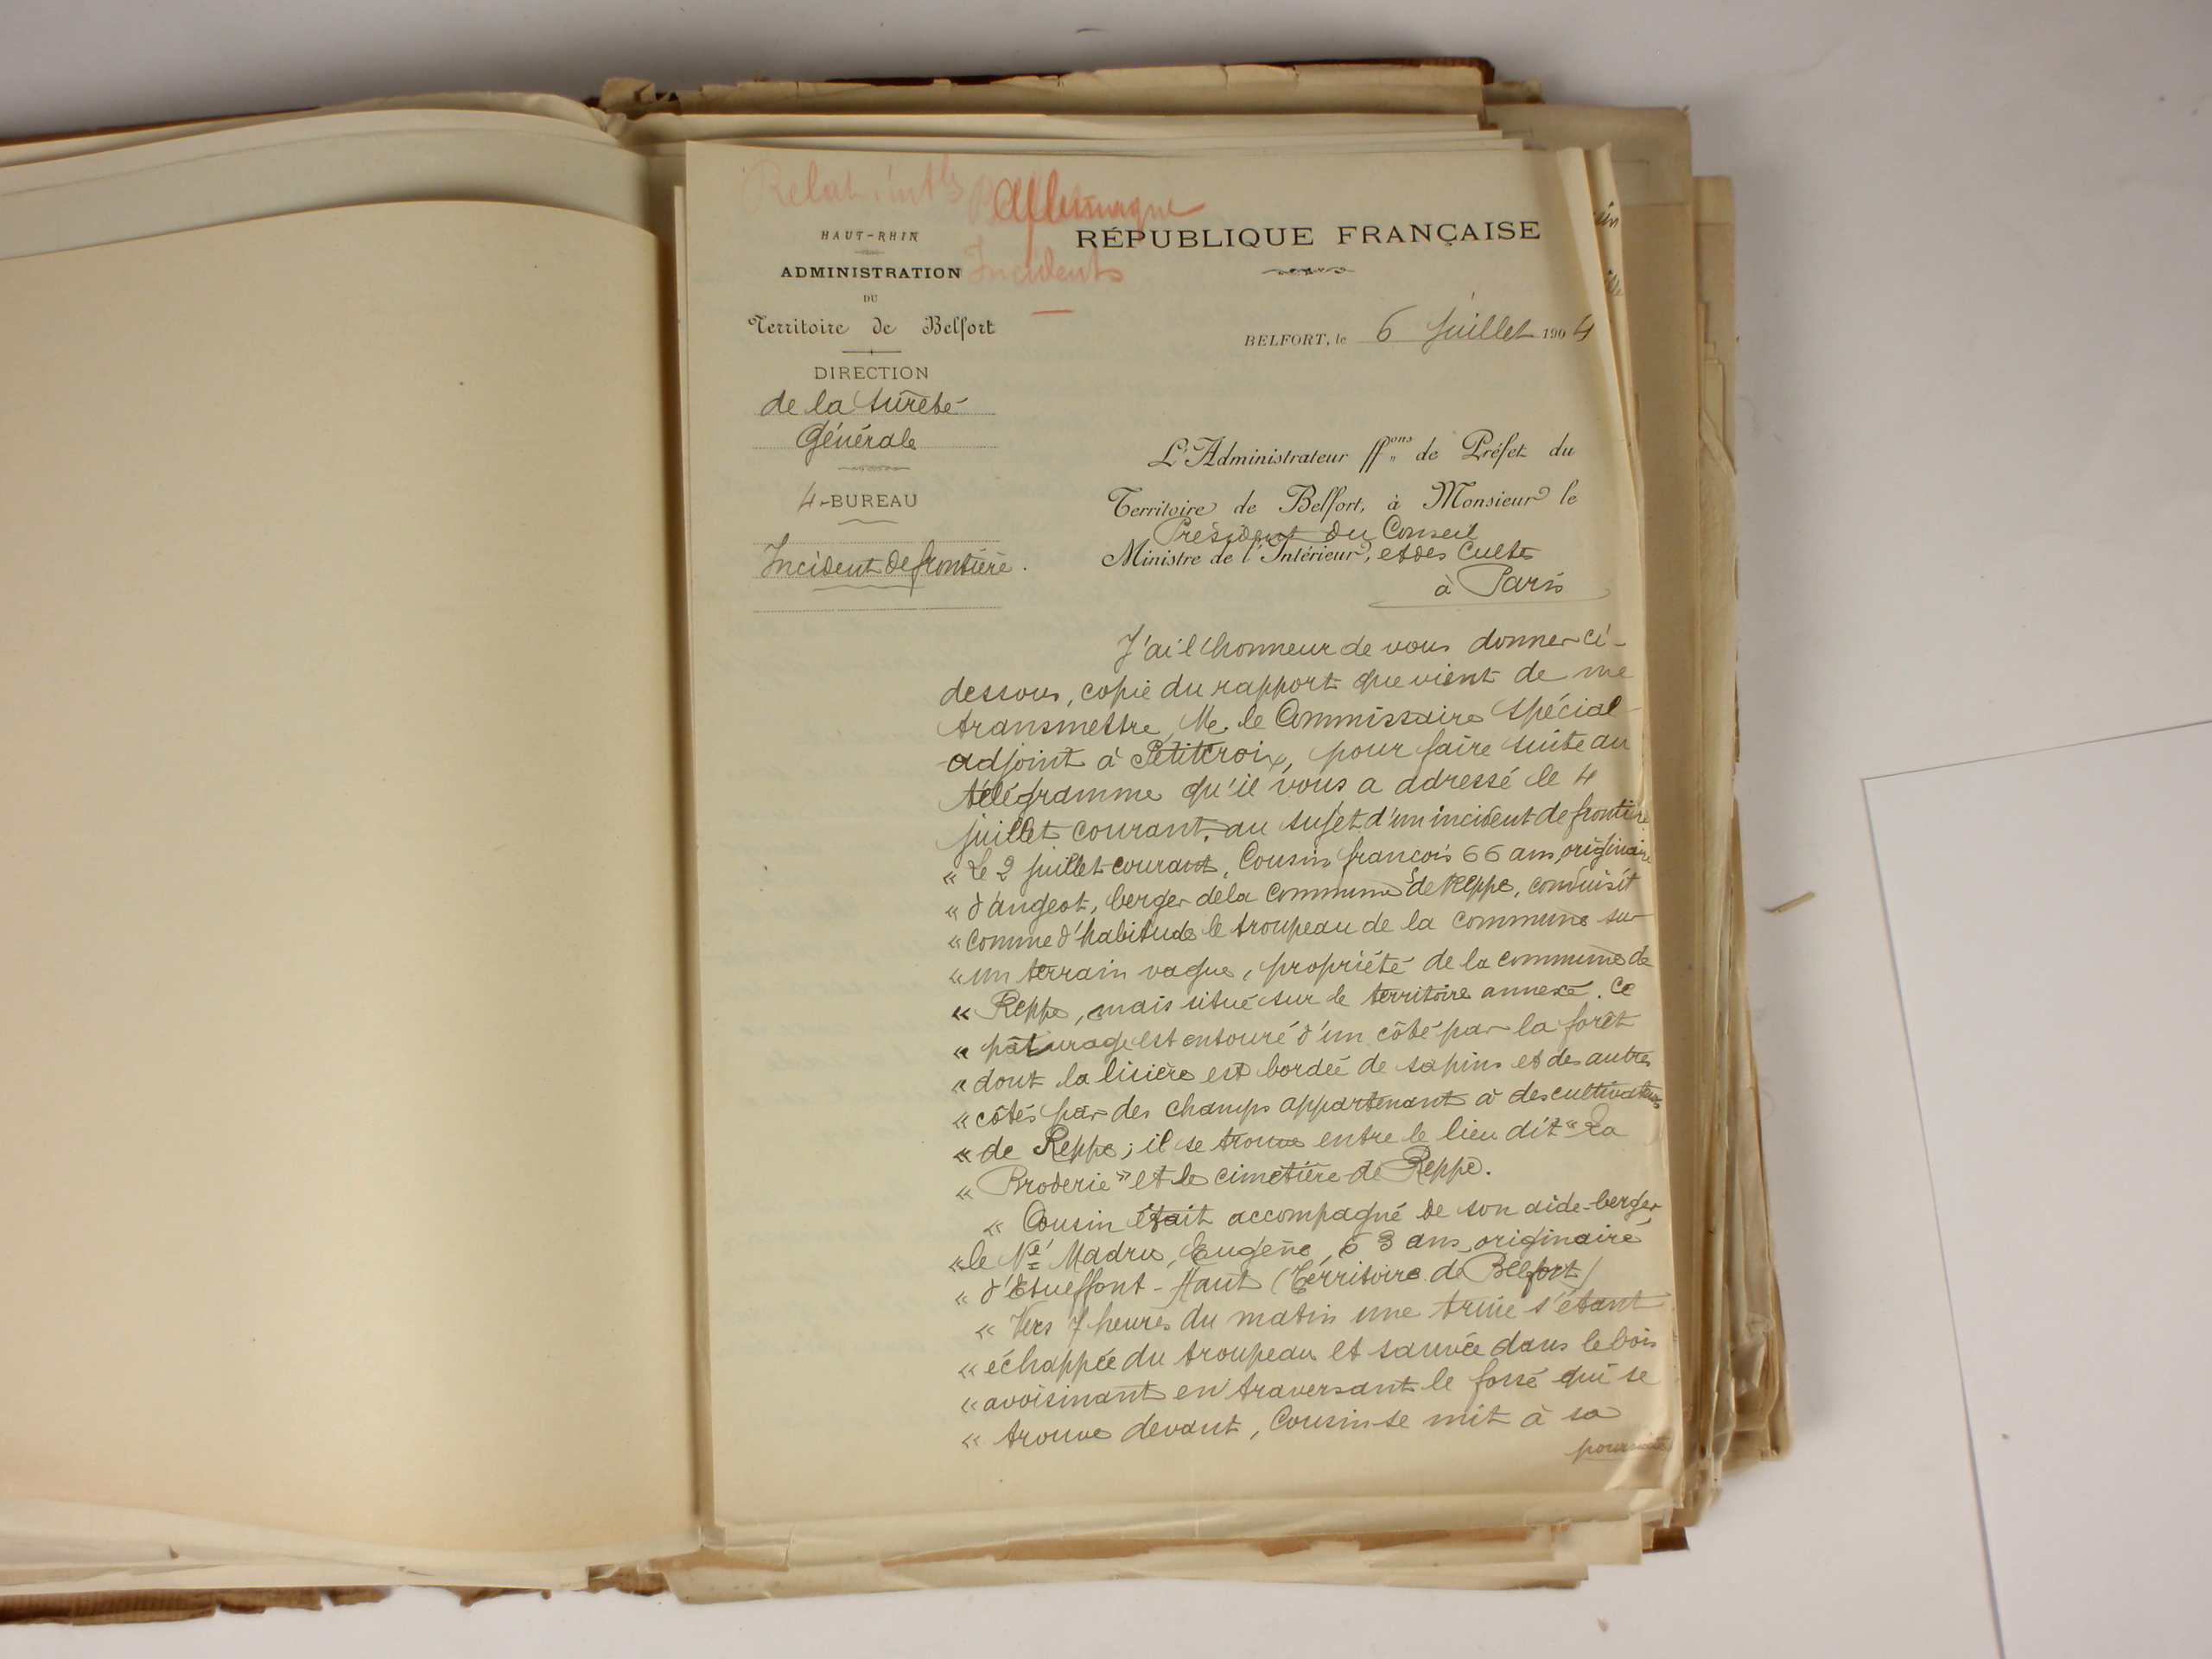 Relat. intles Allemagne
Incidents
HAUT-RHIN
ADMINISTRATION
DU
Territoire de Belfort
DIRECTION
de la Sûreté
Générale
4e BUREAU
Incident de frontière.
RÉPUBLIQUE FRANÇAISE
BELFORT, le 6 Juillet 1904
L'Administrateur ffons de Préfet du
Territoire de Belfort, à Monsieur le
Président du Conseil
Ministre de l'Intérieur, et des Cultes
à Paris
J'ai l'honneur de vous donner ci-
dessous, copie du rapport que vient de me
transmettre, Mr. le Commissaire spécial
adjoint à Petitcroix, pour faire suite au
télégramme qu'il vous a adressé le 4
juillet courant, au sujet d'un incident de frontière
« Le 2 juillet courant, Cousin françois 66 ans, originaire
« d'angeot, berger de la Commune de Reppe, conduisit
« comme d'habitude le troupeau de la commune sur
« un terrain vague, propriété de la commune de
« Reppe, mais situé sur le territoire annexé. Ce
« pâturage est entouré d'un côté par la forêt
« dont la lisière est bordée de sapins et des autres
« côtés par des champs appartenant à des cultivateurs
« de Reppe; il se trouve entre le lieu dit "La
« Broderie" et le cimetière de Reppe.
« Cousin était accompagné de son aide-berger,
« le Né Madru, Eugène, 63 ans, originaire
« d'Etueffont-Haut (Territoire de Belfort)
« Vers 7 heures du matin une truie s'étant
« échappée du troupeau et sauvée dans le bois
« avoisinant en traversant le fossé qui se
« trouve devant, Cousin se mit à sa
poursuite